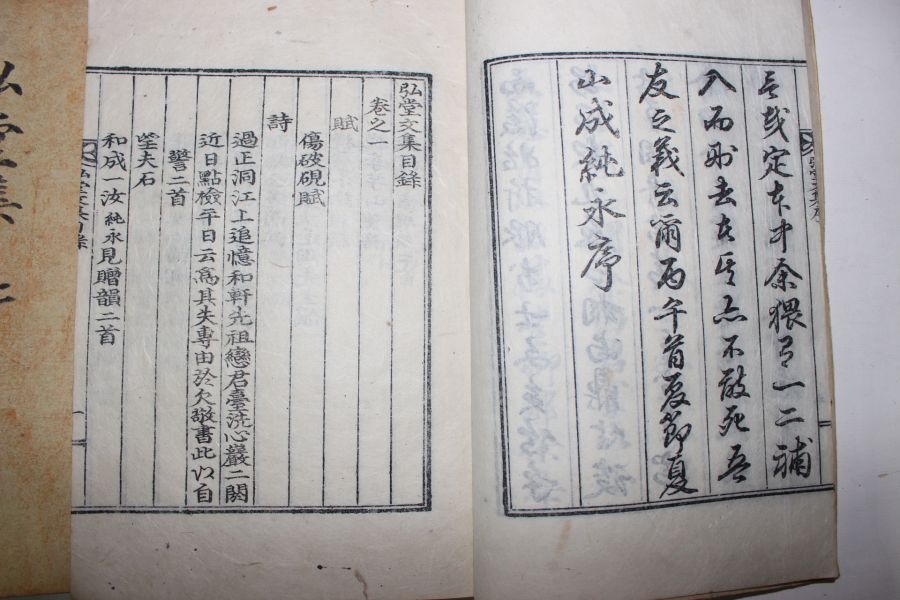 哉定本中余猥有一二補
入而刪去在其亦不敢死吾
友之義云爾丙午首夏節夏
山成純永序
弘堂文集目錄
卷之一
賦
傷破硯賦
詩
過正洞江上追憶和軒先祖戀君臺洗心巖二闋
近日點檢平日云爲其失專由於欠敬書此以自
警二首
望夫石
和成一汝純永見贈韻二首